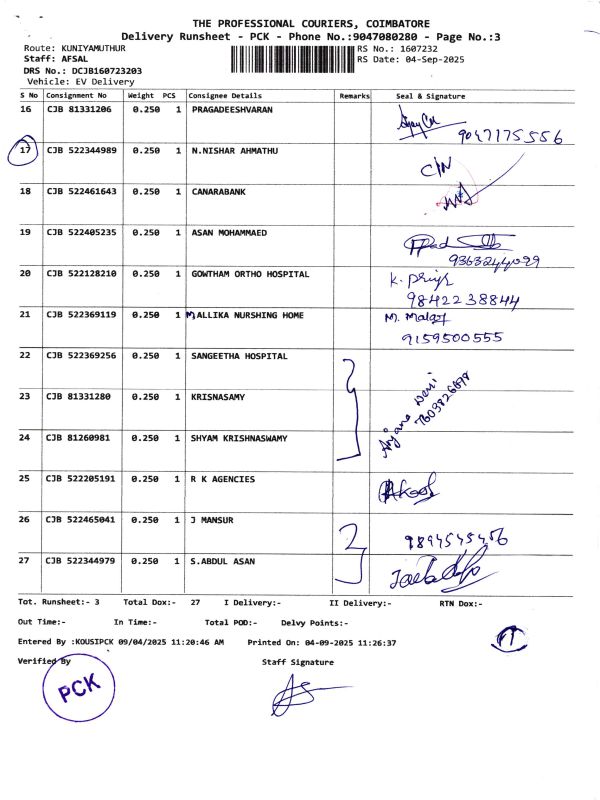 THE PROFESSIONAL COURIERS, COIMBATORE
Delivery Runsheet - PCK - Phone No.:9047080280 - Page No.:3
Route: KUNIYAMUTHUR RS No.: 1607232
Staff: AFSAL RS Date: 04-Sep-2025
DRS No.: DCJB160723203
Vehicle: EV Delivery
S No Consignment No Weight PCS Consignee Details Remarks Seal & Signature
16 CJB 81331206 0.250 1 PRAGADEESHVARAN
9047175556
17 CJB 522344989 0.250 1 N.NISHAR AHMATHU
C/N
18 CJB 522461643 0.250 1 CANARABANK
19 CJB 522405235 0.250 1 ASAN MOHAMMAED
9363244099
20 CJB 522128210 0.250 1 GOWTHAM ORTHO HOSPITAL K. Priya
9842238844
21 CJB 522369119 0.250 1 MALLIKA NURSHING HOME M.
9159500555
22 CJB 522369256 0.250 1 SANGEETHA HOSPITAL
23 CJB 81331280 0.250 1 KRISNASAMY
24 CJB 81260981 0.250 1 SHYAM KRISHNASWAMY
25 CJB 522205191 0.250 1 R K AGENCIES
26 CJB 522465041 0.250 1 J MANSUR
9894545456
27 CJB 522344979 0.250 1 S.ABDUL ASAN
Tot. Runsheet:- 3 Total Dox:- 27 I Delivery:- II Delivery:- RTN Dox:-
Out Time:- In Time:- Total POD:- Delvy Points:-
Entered By :KOUSIPCK 09/04/2025 11:20:46 AM Printed On: 04-09-2025 11:26:37
Verified By Staff Signature
PCK